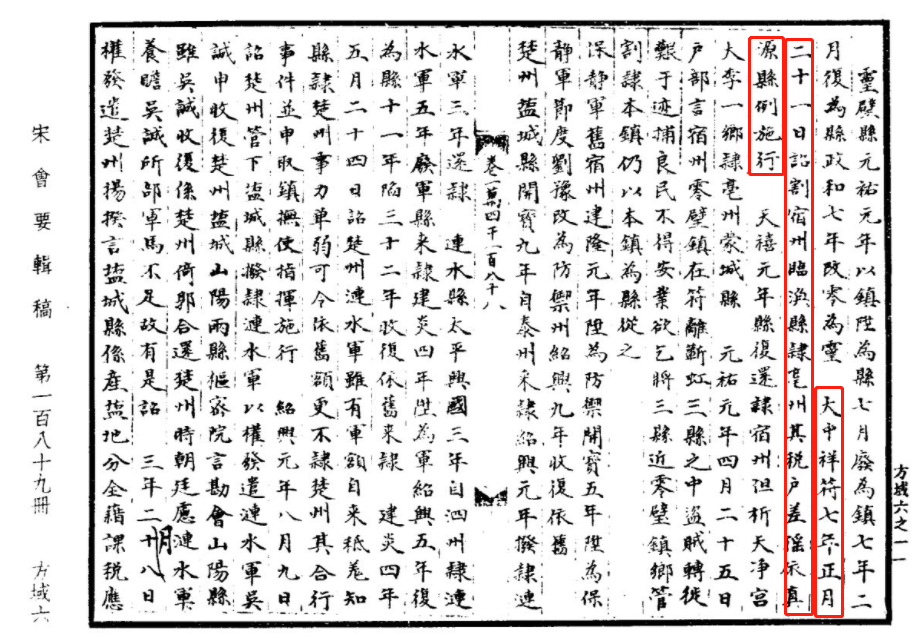 靈壁縣元祐元年以鎮陞為縣七月廢為鎮七年二
月復為縣政和七年改零為靈　大中祥符七年正月
二十一日詔割宿州臨渙縣隸亳州其税户差徭依真
源縣例施行　天禧元年縣復還隸宿州但析天净宮
大李一鄉隸亳州蒙城縣　元祐元年四月二十五日
户部言宿州零壁鎮在符離蘄虹三縣之中盜賊轉徙
艱于迹捕良民不得安業欲乞將三縣近零壁鎮鄉管
割隸本鎮仍以本鎮為縣從之
保静軍舊宿州建隆元年陞為防禦開寶五年陞為保
静軍節度劉豫改為防禦州紹興九年收復依舊
楚州盐城縣開寶九年自泰州来隸紹興元年撥隸連
卷一萬四千一百八十八
水軍三年還隸　連水縣太平興國三年自泗州隸連
水軍五年廢軍縣来隸建炎四年陞為軍紹興五年復
為縣十一年陷三十二年收復依舊来隸　建炎四年
五月二十四日詔楚州漣水軍雖有軍額自来秪差知
縣隸楚州事力单弱可令依舊額更不隸楚州其合行
事件並申取鎮撫使指揮施行　紹興元年八月九日
詔楚州管下盐城縣撥隸連水軍以權發遣連水軍吳
誠申收復楚州盐城山陽兩縣樞宻院言勘會山陽縣
雖吳誠收復係楚州倚郭合還楚州時朝廷慮漣水軍
養贍吳誠所部軍馬不足故有是詔　三年二十八日
月
權發遣楚州揚揆言盐城縣係産盐地分全藉課税應
方域六之一一
宋會要輯稿　第一百八十九冊　方域六